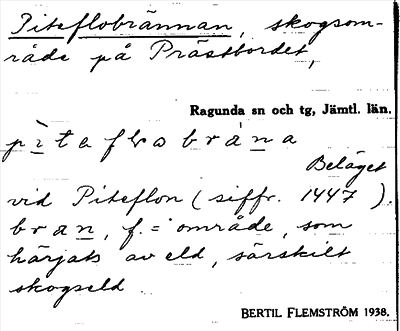 Piteflobrännan, skogsom-
råde på Prästbordet,
Ragunda sn och tg, Jämtl. län.
pìtaflobràna
Beläget
vid Piteflon (siffr. 1447).
bran, f. = område, som
härjats av eld, särskilt
skogseld.
BERTIL FLEMSTRÖM 1938.